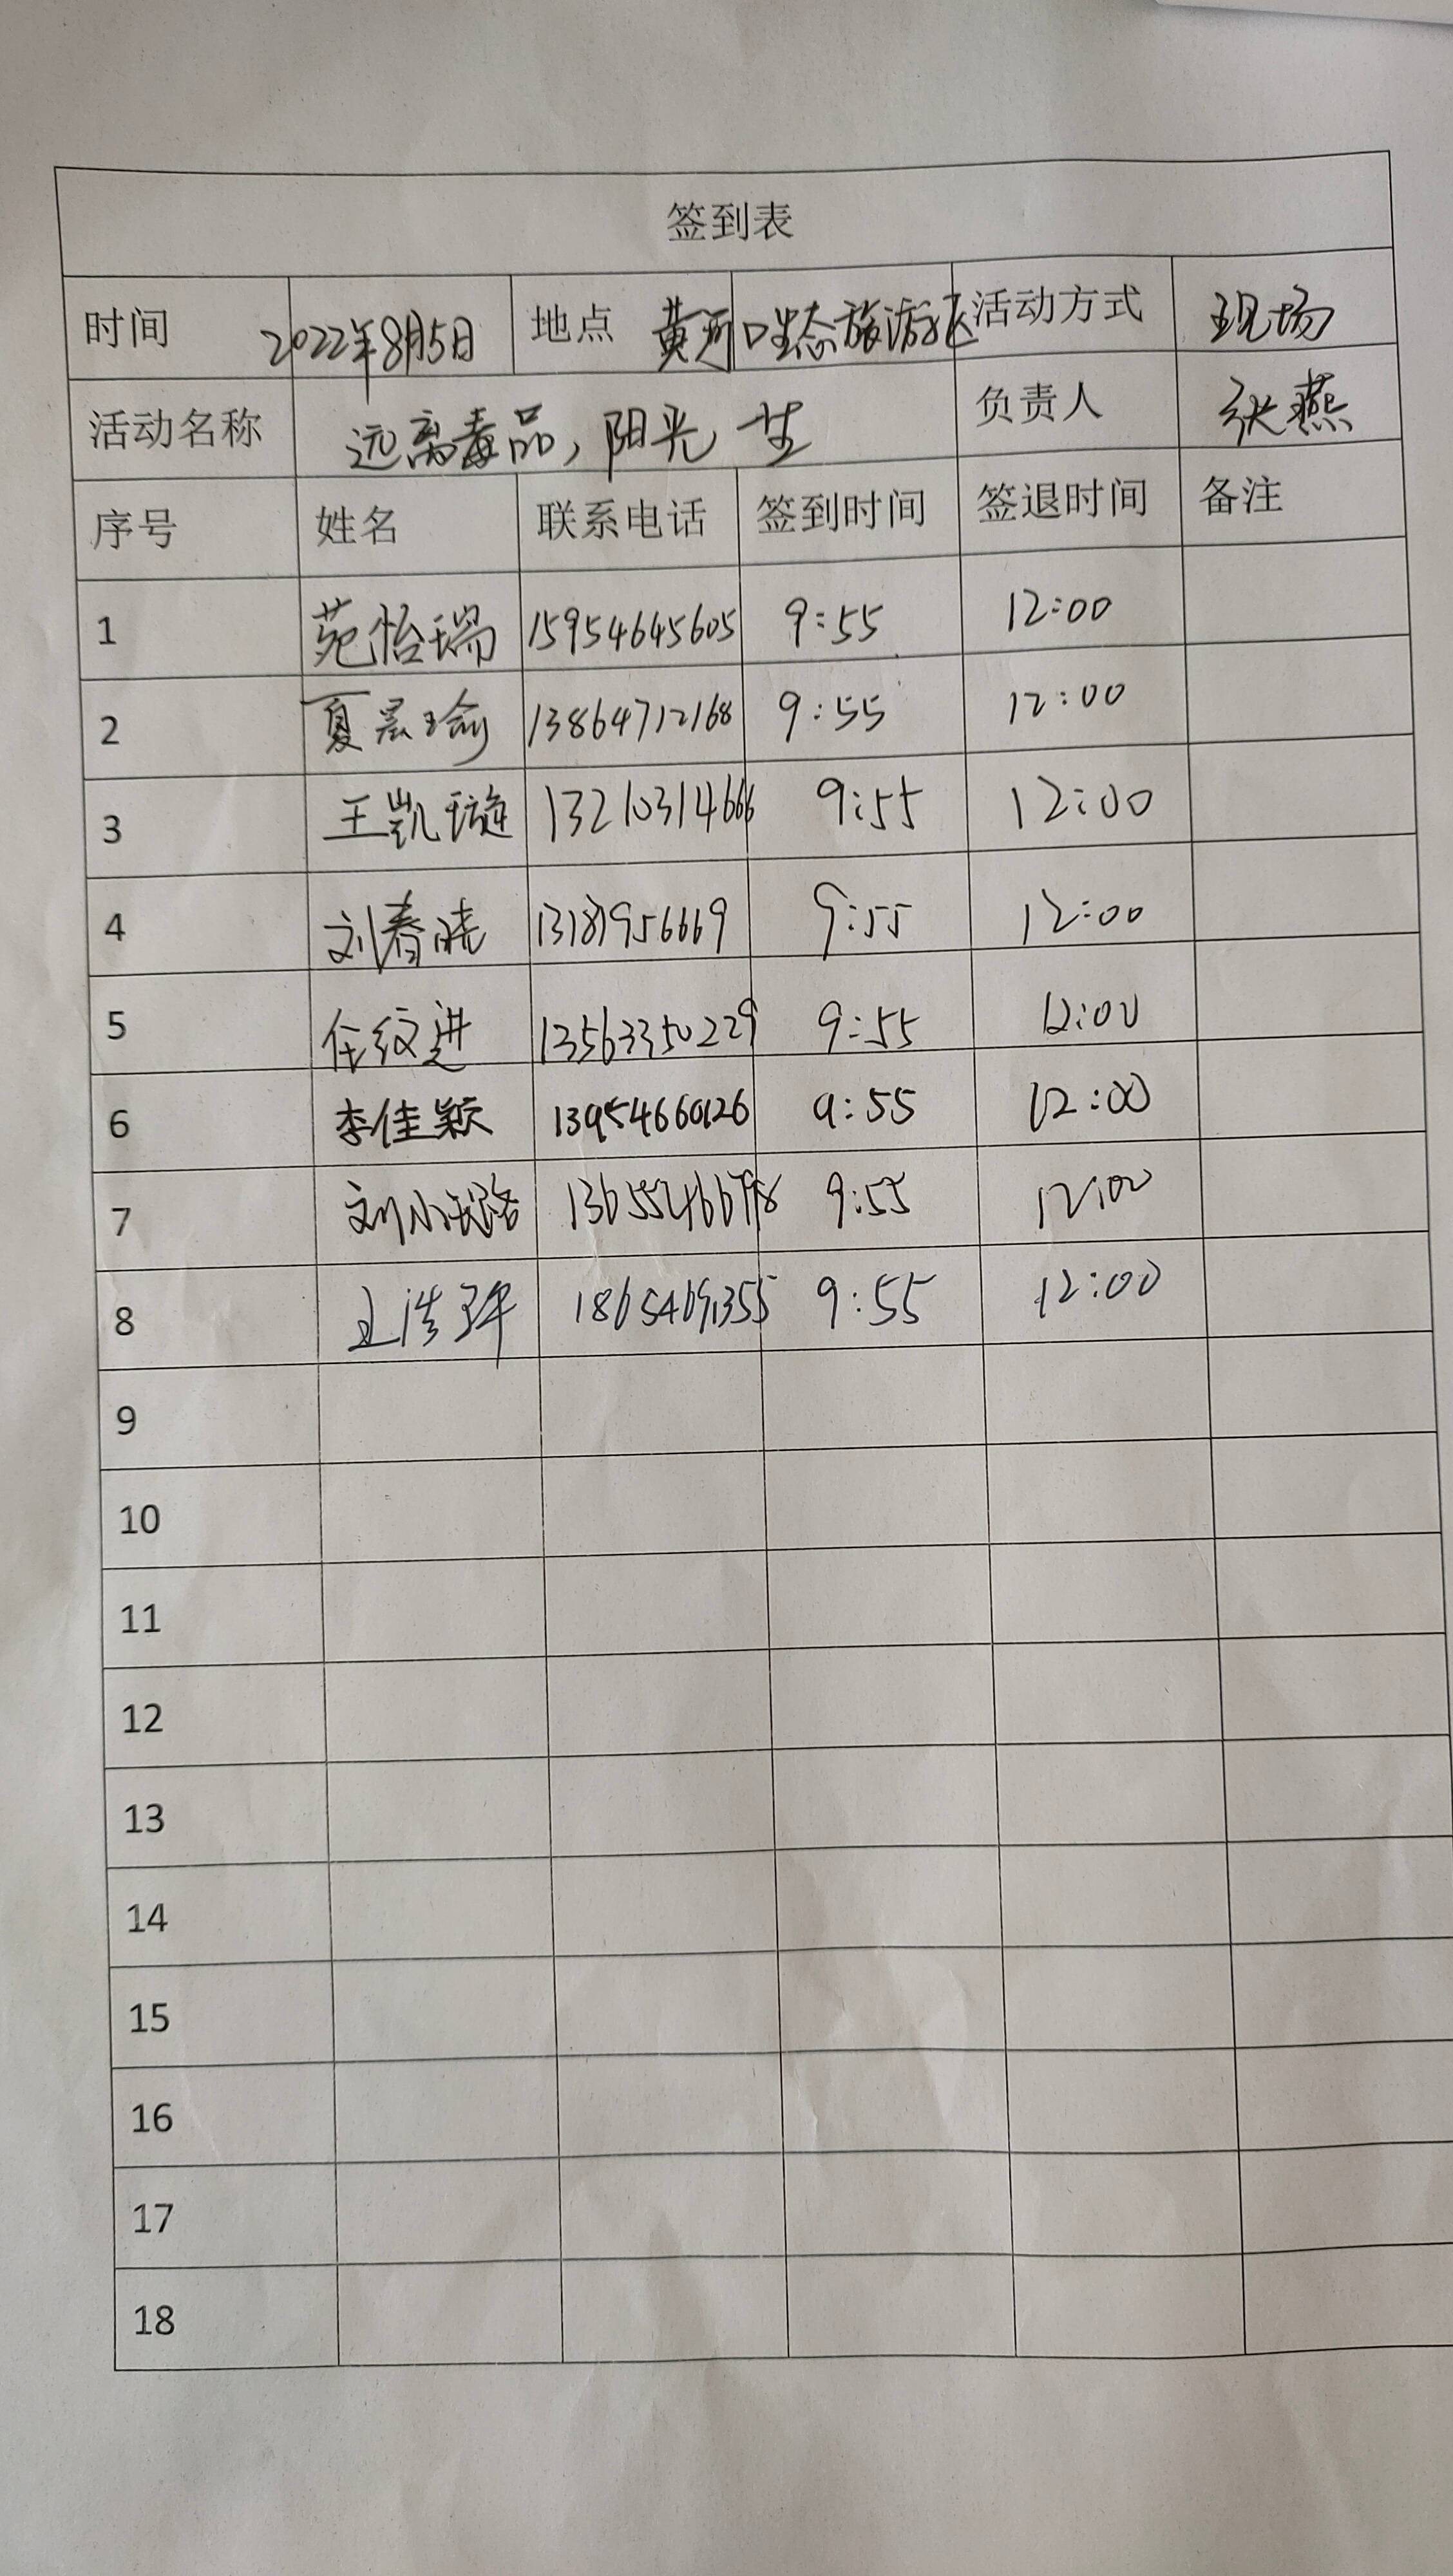 签到表
时间 2022年8月5日 地点 黄河口生态旅游区 活动方式 现场
活动名称 远离毒品，阳光一生 负责人 张燕
序号 姓名 联系电话 签到时间 签退时间 备注
1 苑怡瑞 15954645605 9:55 12:00
2 夏晨瑜 13864712168 9:55 12:00
3 王凯璇 13210314666 9:55 12:00
4 刘春晓 13181956669 9:55 12:00
5 任纹进 13563350229 9:55 12:00
6 李佳颖 13954660126 9:55 12:00
7 9:55 12:00
8 9:55 12:00
9
10
11
12
13
14
15
16
17
18